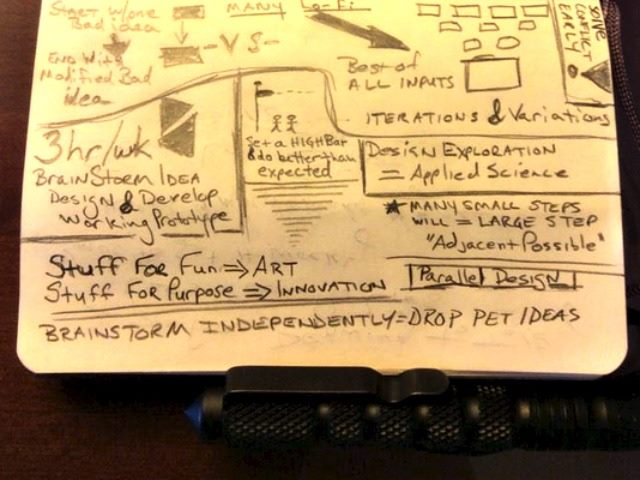 Start w/one
Bad idea
End With
Modified Bad
idea
-VS-
MANY Lo-Fi
Best of
ALL INPUTS
ITERATIONS & Variations
SOLVE
CONFLICT
EARLY
3hr/wk
BRAINSTORM IDEA
Design & Develop
Working Prototype
Set a HIGH Bar
& do better than
expected
DESIGN EXPLORATION
= Applied Science
MANY SMALL STEPS
WILL = LARGE STEP
"Adjacent Possible"
Parallel Design
Stuff For Fun => ART
Stuff For Purpose => INNOVATION
BRAINSTORM INDLEPENDENTLY = DROP PET IDEAS